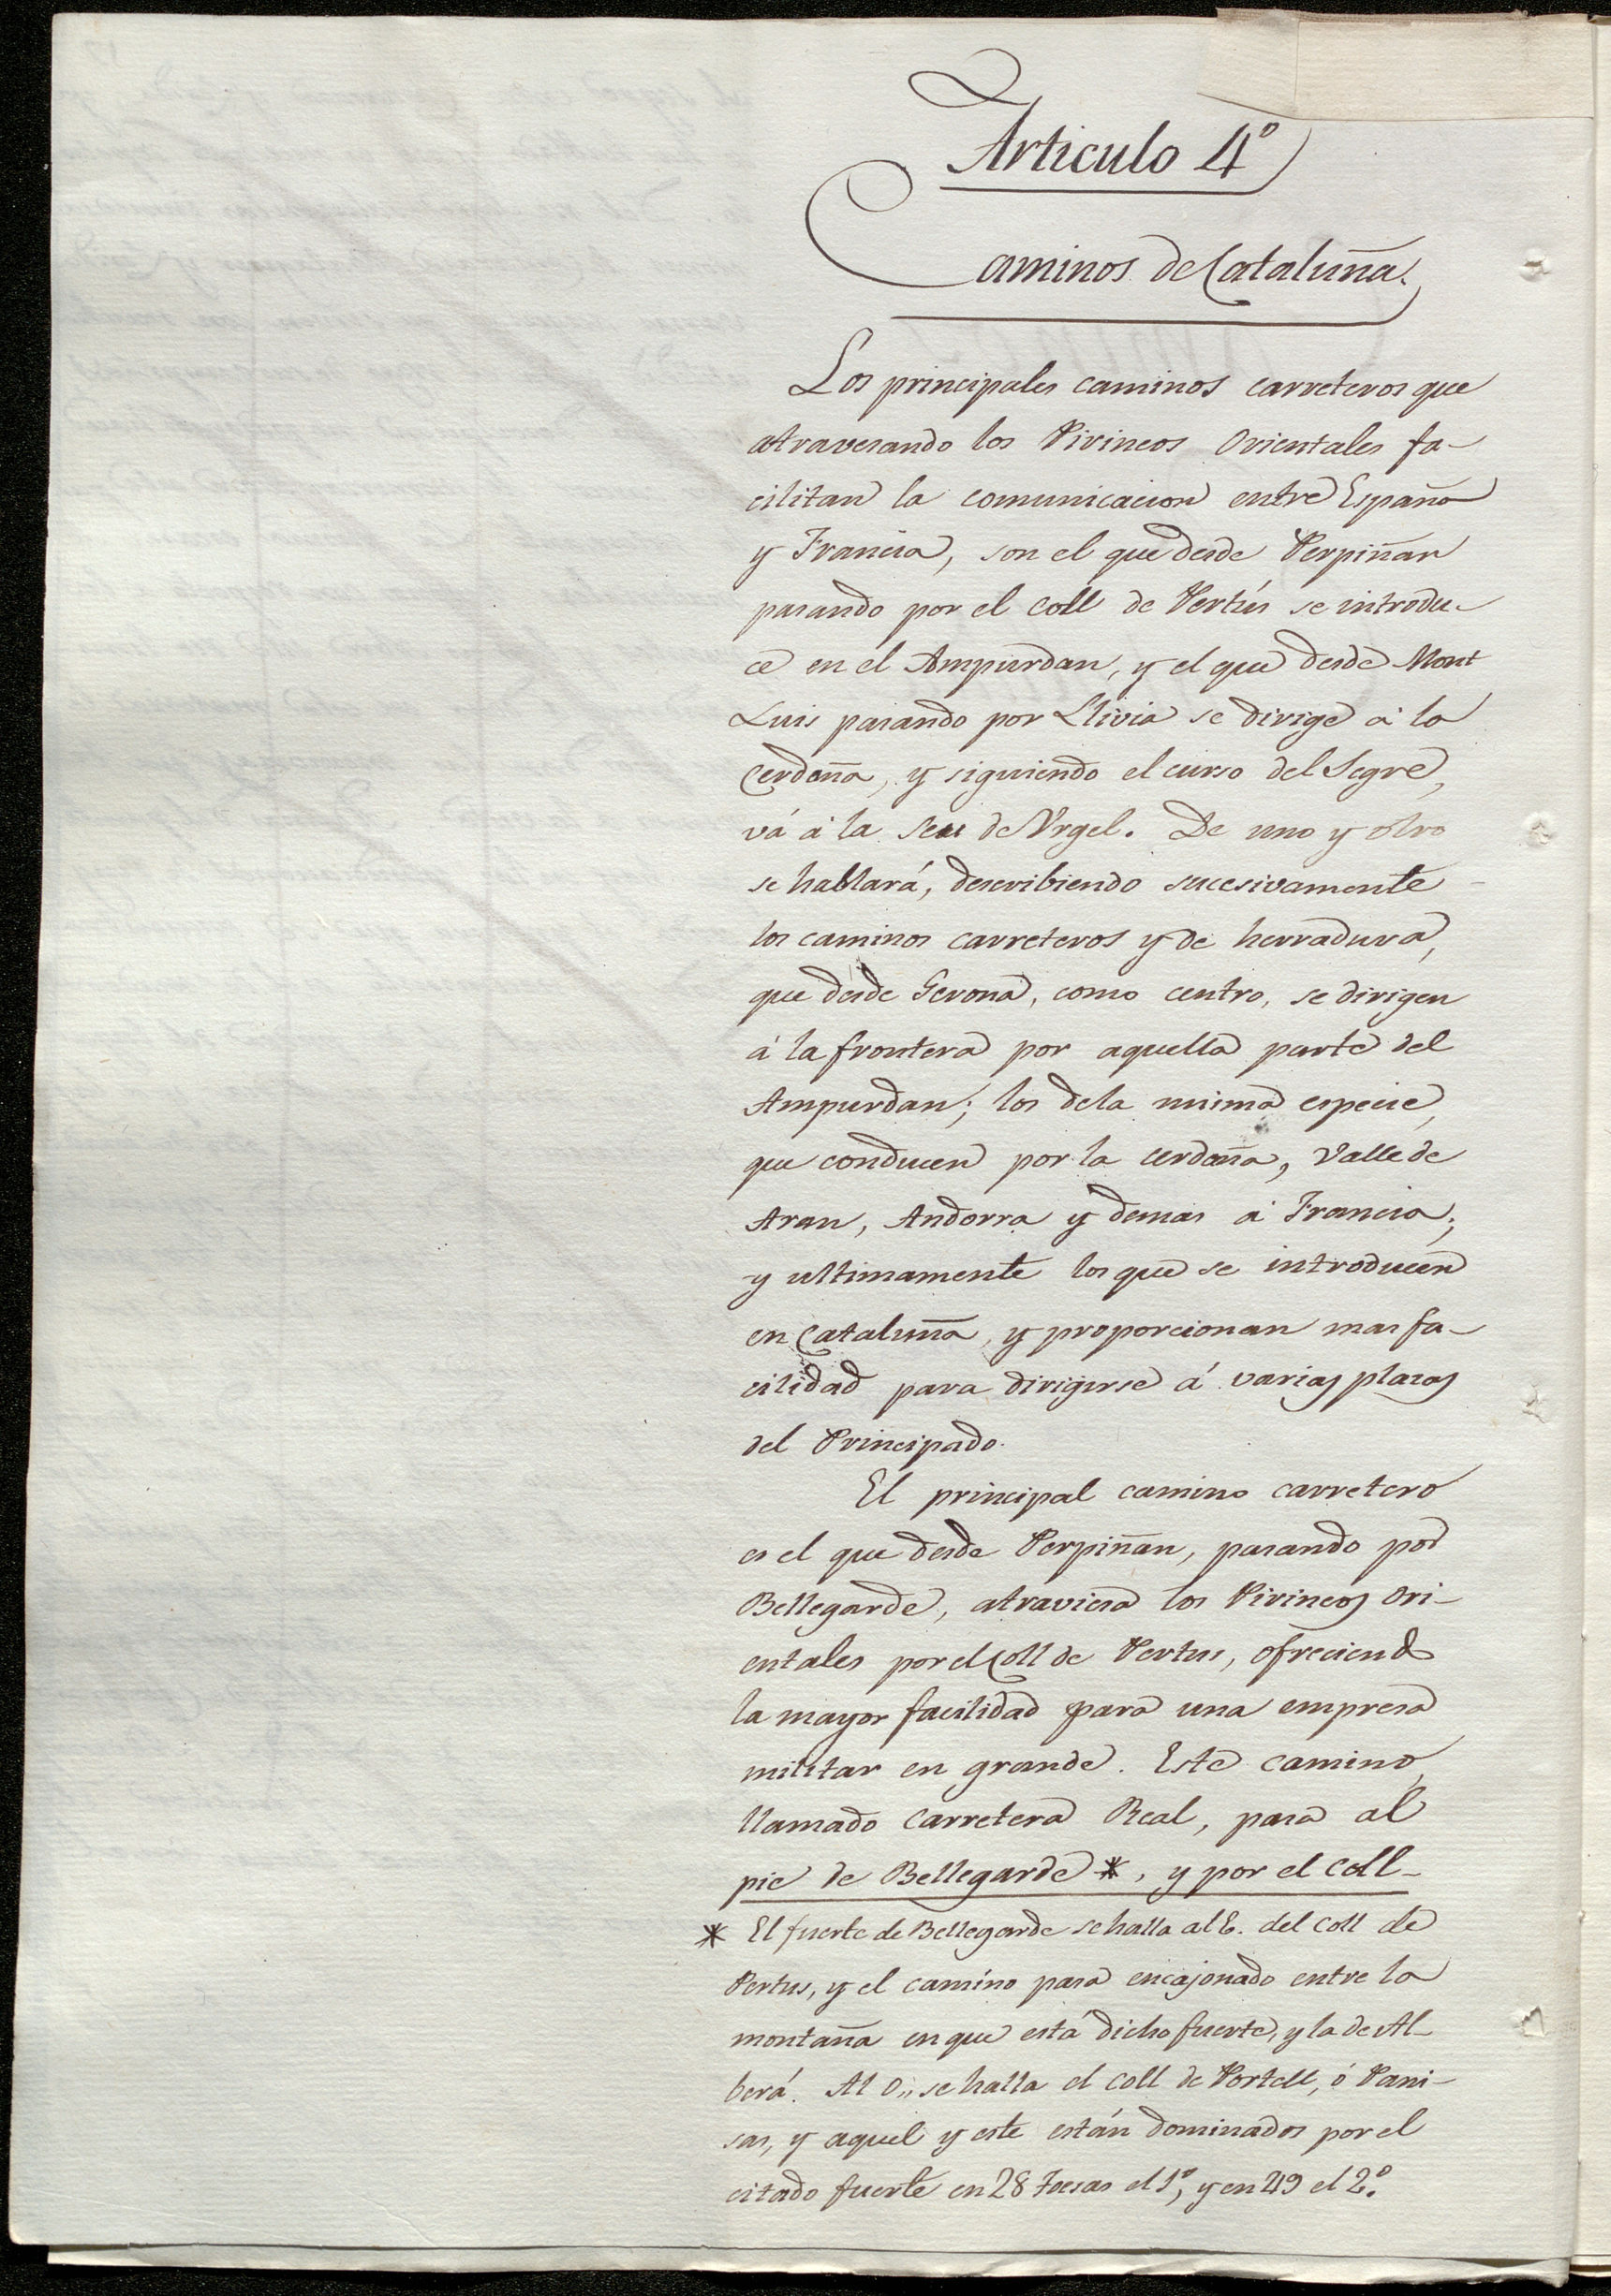 Articulo 4º
Caminos de Cataluña.
Los principales caminos carreteros que
atravesando los Pirineos Orientales fa-
cilitan la comunicacion entre España
y Francia, son el que desde Perpiñan
pasando por el coll de Pertús se introdu-
ce en el Ampurdan, y el que desde Mont
Luis pasando por Llivia se dirige á la
Cerdaña, y siguiendo el curso del Segre,
vá á la Seu de Urgel. De uno y otro
se hablará, describiendo sucesivamente
los caminos carreteros y de herradura,
que desde Gerona, como centro, se dirigen
á la frontera por aquella parte del
Ampurdan; los dela misma especie,
que conducen por la cerdaña, Valle de
Aran, Andorra y demas á Francia;
y ultimamente los que se introducen
en Cataluña, y proporcionan mas fa-
cilidad para dirigirse á varias plazas
del Principado.
El principal camino carretero
es el que desde Perpiñan, pasando por
Bellegarde, atraviesa los Pirineos Ori-
entales por el Coll de Pertus, ofreciendo
la mayor facilidad para una empresa
militar en grande. Este camino,
llamado Carretera Real, pasa al
pie de Bellegarde *, y por el Coll-
* El fuerte de Bellegarde se halla al E. del Coll de
Pertus, y el camino pasa encajonado entre la
montaña en que está dicho fuerte, y la de Al-
berá. Al O,, se halla el Coll de Portell, ó Pani-
sas, y aquel y este están dominados por el
citado fuerte en 28 Toesas el 1º, y en 49 el 2º.